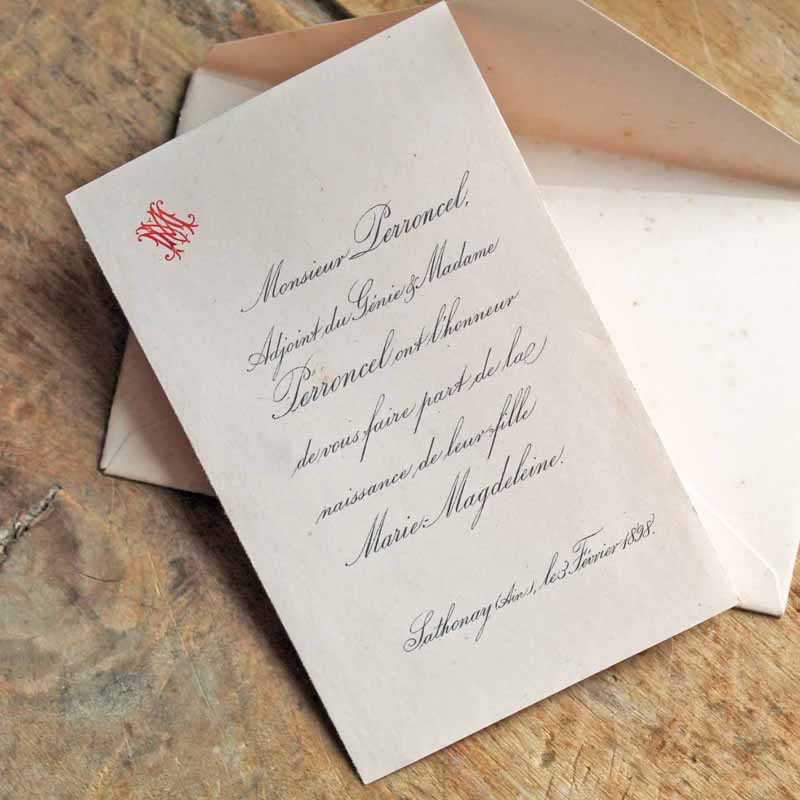 MM
Monsieur Perroncel,
Adjoint du Génie & Madame
Perroncel ont l'honneur
de vous faire part de la
naissance de leur fille
Marie-Magdeleine.
Sathonay (Ain), le 3 Février 1898.